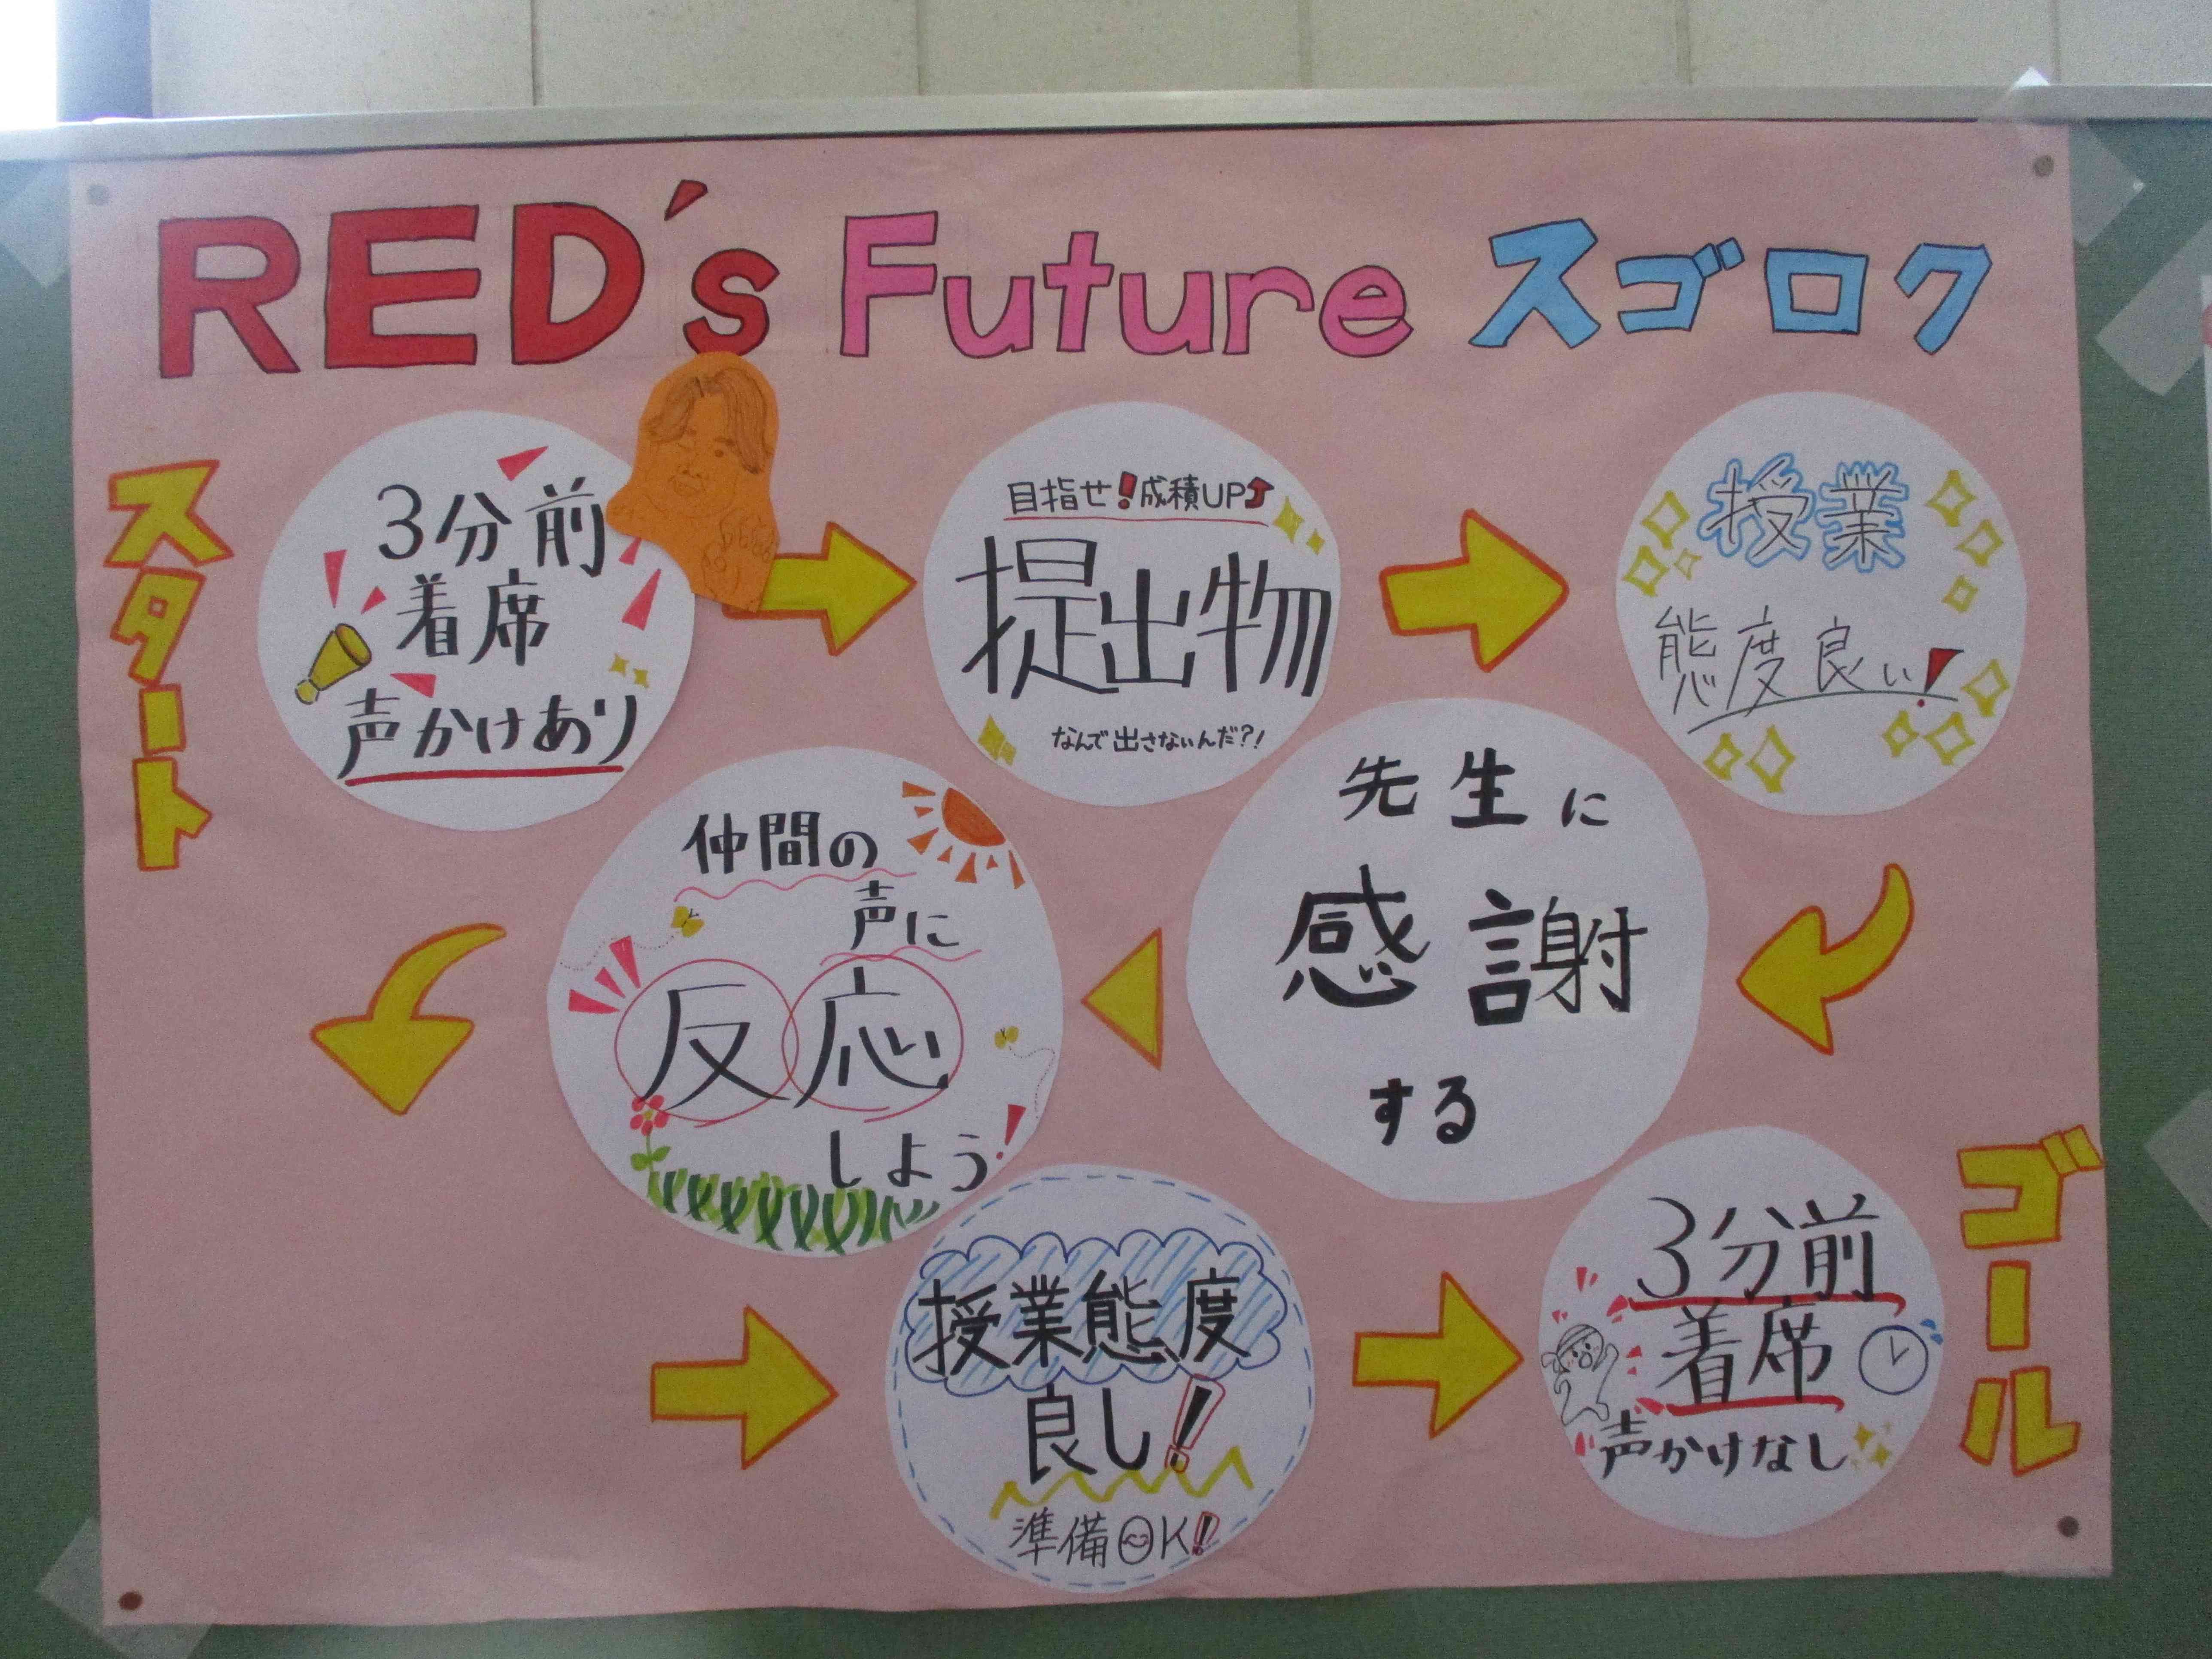 RED's Future スゴロク
スタート
3分前
着席
声かけあり
目指せ!成積UP
提出物
なんで出さないんだ?!
授業
態度良い!
先生に
感謝
する
仲間の
声に
反応
しよう!
授業態度
良し!
準備OK!
3分前
着席
声かけなし
ゴール